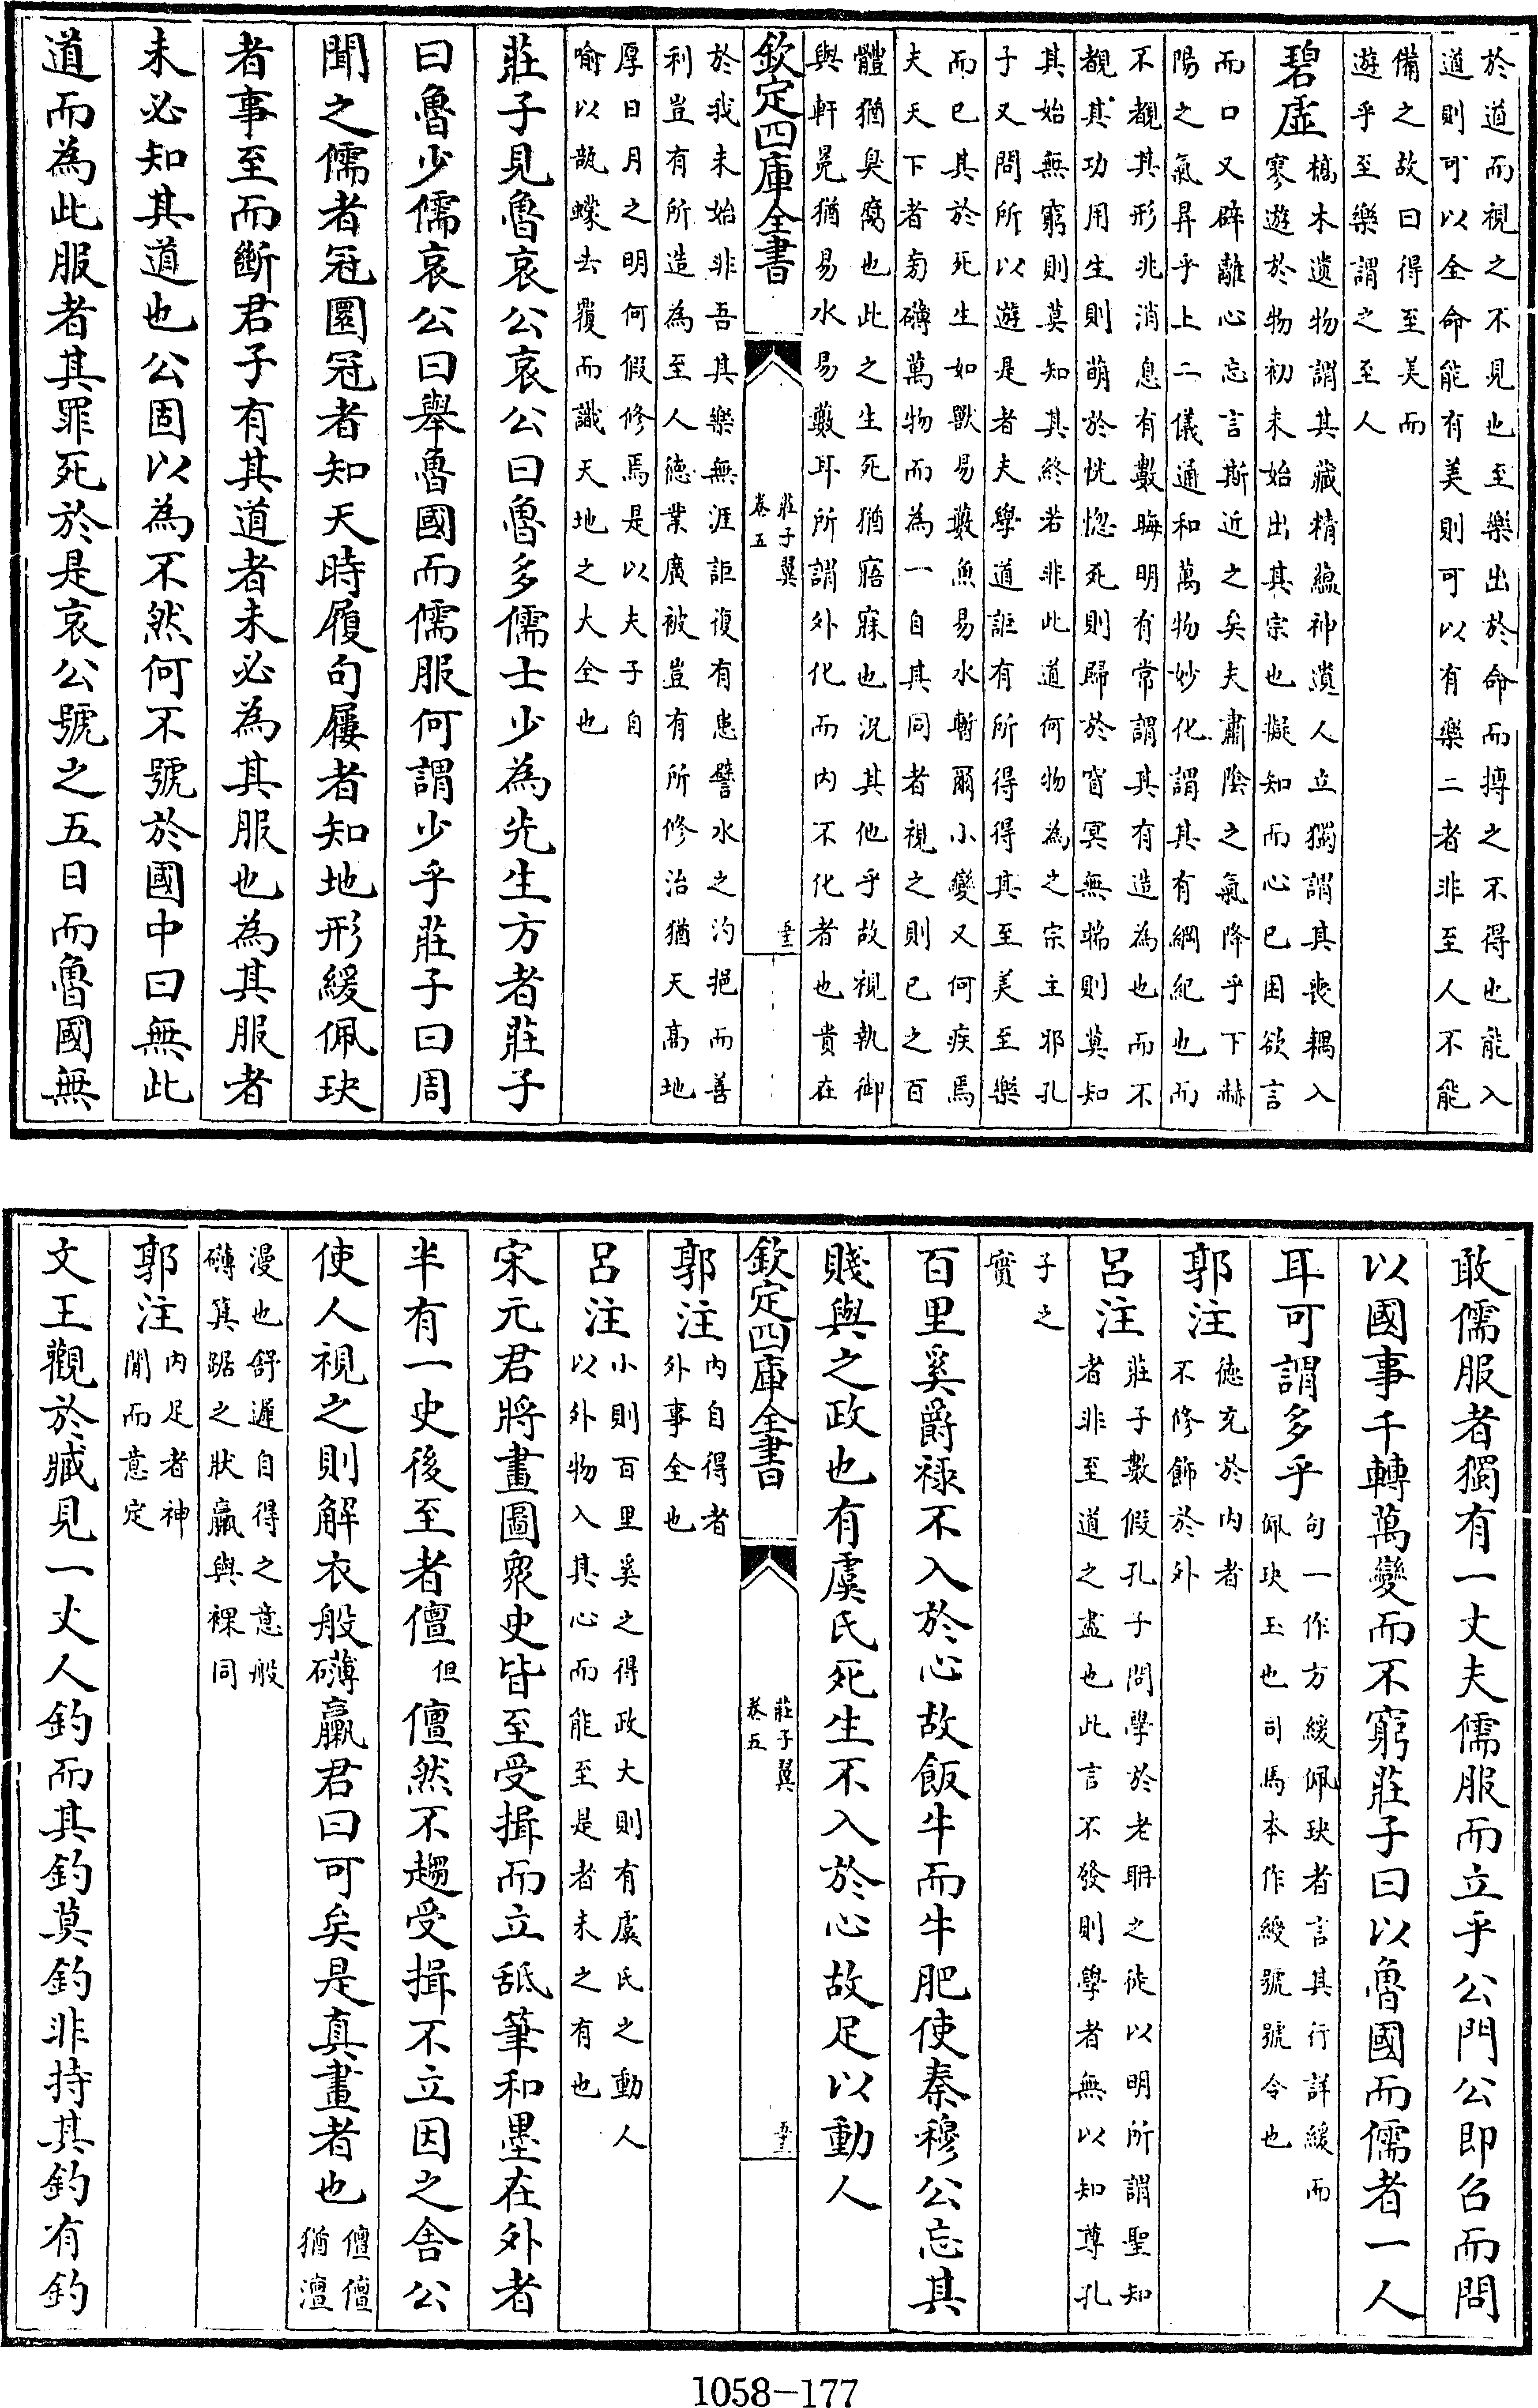 於道而視之不見也至樂出於命而摶之不得也能入
道則可以全命能有美則可以有樂二者非至人不能
備之故曰得至美而
遊乎至樂謂之至人
碧虛
槁木遺物謂其藏精蘊神遺人立獨謂其喪耦入
寥遊於物初未始出其宗也擬知而心已困欲言
而口又辟離心忘言斯近之矣夫肅陰之氣降乎下赫
陽之氣昇乎上二儀通和萬物妙化謂其有綱紀也而
不覩其形兆消息有數晦明有常謂其有造為也而不
覩其功用生則萌於恍惚死則歸於窅冥無端則莫知
其始無窮則莫知其終若非此道何物為之宗主邪孔
子又問所以遊是者夫學道詎有所得得其至美至樂
而已其於死生如獸易藪魚易水暫爾小變又何疾焉
夫天下者旁礴萬物而為一自其同者視之則已之百
體猶臭腐也此之生死猶寤寐也況其他乎故視執御
與軒冕猶易水易藪耳所謂外化而內不化者也貴在
欽定四庫全書
莊子翼
卷五
於我未始非吾其樂無涯詎復有患譬水之汋挹而善
利豈有所造為至人德業廣被豈有所修治猶天高地
厚日月之明何假修焉是以夫子自
喻以瓿蠓去覆而識天地之大全也
莊子見魯哀公哀公曰魯多儒士少為先生方者莊子
曰魯少儒哀公曰舉魯國而儒服何謂少乎莊子曰周
聞之儒者冠圜冠者知天時履句屨者知地形緩佩玦
者事至而斷君子有其道者未必為其服也為其服者
未必知其道也公固以為不然何不號於國中曰無此
道而為此服者其罪死於是哀公號之五日而魯國無
敢儒服者獨有一丈夫儒服而立乎公門公即召而問
以國事千轉萬變而不窮莊子曰以魯國而儒者一人
耳可謂多乎
句一作方緩佩玦者言其行詳緩而
佩玦玉也司馬本作綬號號令也
郭注
德充於內者
不修飾於外
呂注
莊子數假孔子問學於老聃之徒以明所謂聖知
者非至道之盡也此言不發則學者無以知尊孔
子之
實
百里奚爵祿不入於心故飯牛而牛肥使秦穆公忘其
賤與之政也有虞氏死生不入於心故足以動人
欽定四庫全書
莊子翼
卷五
郭注
內自得者
外事全也
呂注
小則百里奚之得政大則有虞氏之動人
以外物入其心而能至是者未之有也
宋元君將畫圖眾史皆至受揖而立舐筆和墨在外者
半有一史後至者儃但儃然不趨受揖不立因之舍公
使人視之則解衣般礴臝君曰可矣是真畫者也
儃儃
猶澶
漫也舒遲自得之意般
礴箕踞之狀臝與裸同
郭注
內足者神
閒而意定
文王觀於臧見一丈人釣而其釣莫釣非持其釣有釣
1058-177